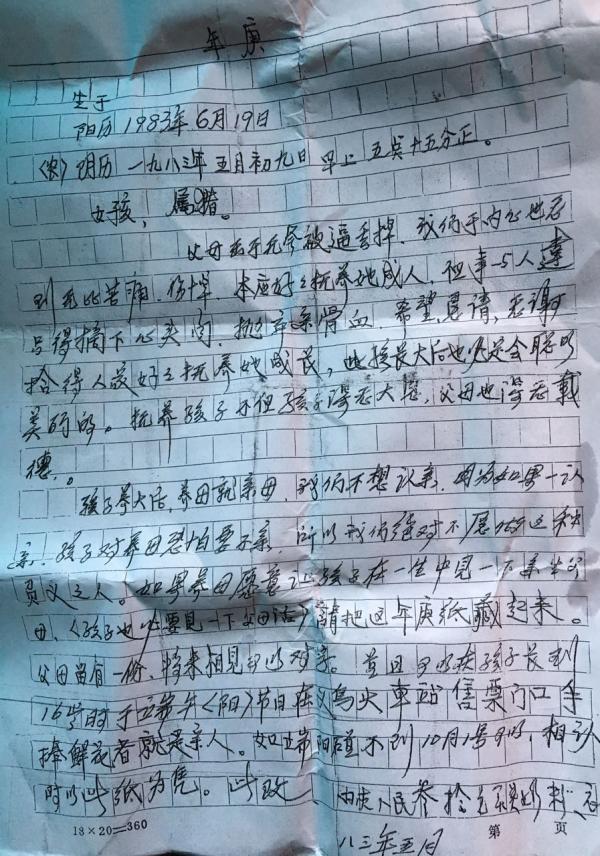 年庚
生于
阳历 1983年6月19日
〈农〉阴历 一九八三年五月初九日 早上 五点十五分正。
女孩，属猪。
父母出于无奈被逼丢掉，我们于内心也感
到无比苦痛、伤悼。本应好好抚养她成人，但事与人违
只得摘下心头肉，抛弃亲骨血，希望、恳请、感谢
拾得人最好好抚养她成长，此孩长大后也必定会聪明
美丽的。抚养孩子不但孩子得感大恩，父母也得感戴
德。
孩子养大后，养母就亲母，我们不想认亲，因为如果一认
亲，孩子对养母恐怕要不亲，所以我们绝对不愿做这种
负义之人。如果养母愿意让孩子在一生中见一下亲生父
母，〈孩子也必要见一下父母活〉请把这年庚纸藏起来。
父母留有一份，将来相见可以对亲。并且可以候孩子长到
16岁时于 〈阳〉节日在义乌火车站售票门口手
捧鲜花者就是亲人。如 不到10月1号 ，相认
时以此纸为凭。此致 人民
八三年五月
18×20=360
第 页